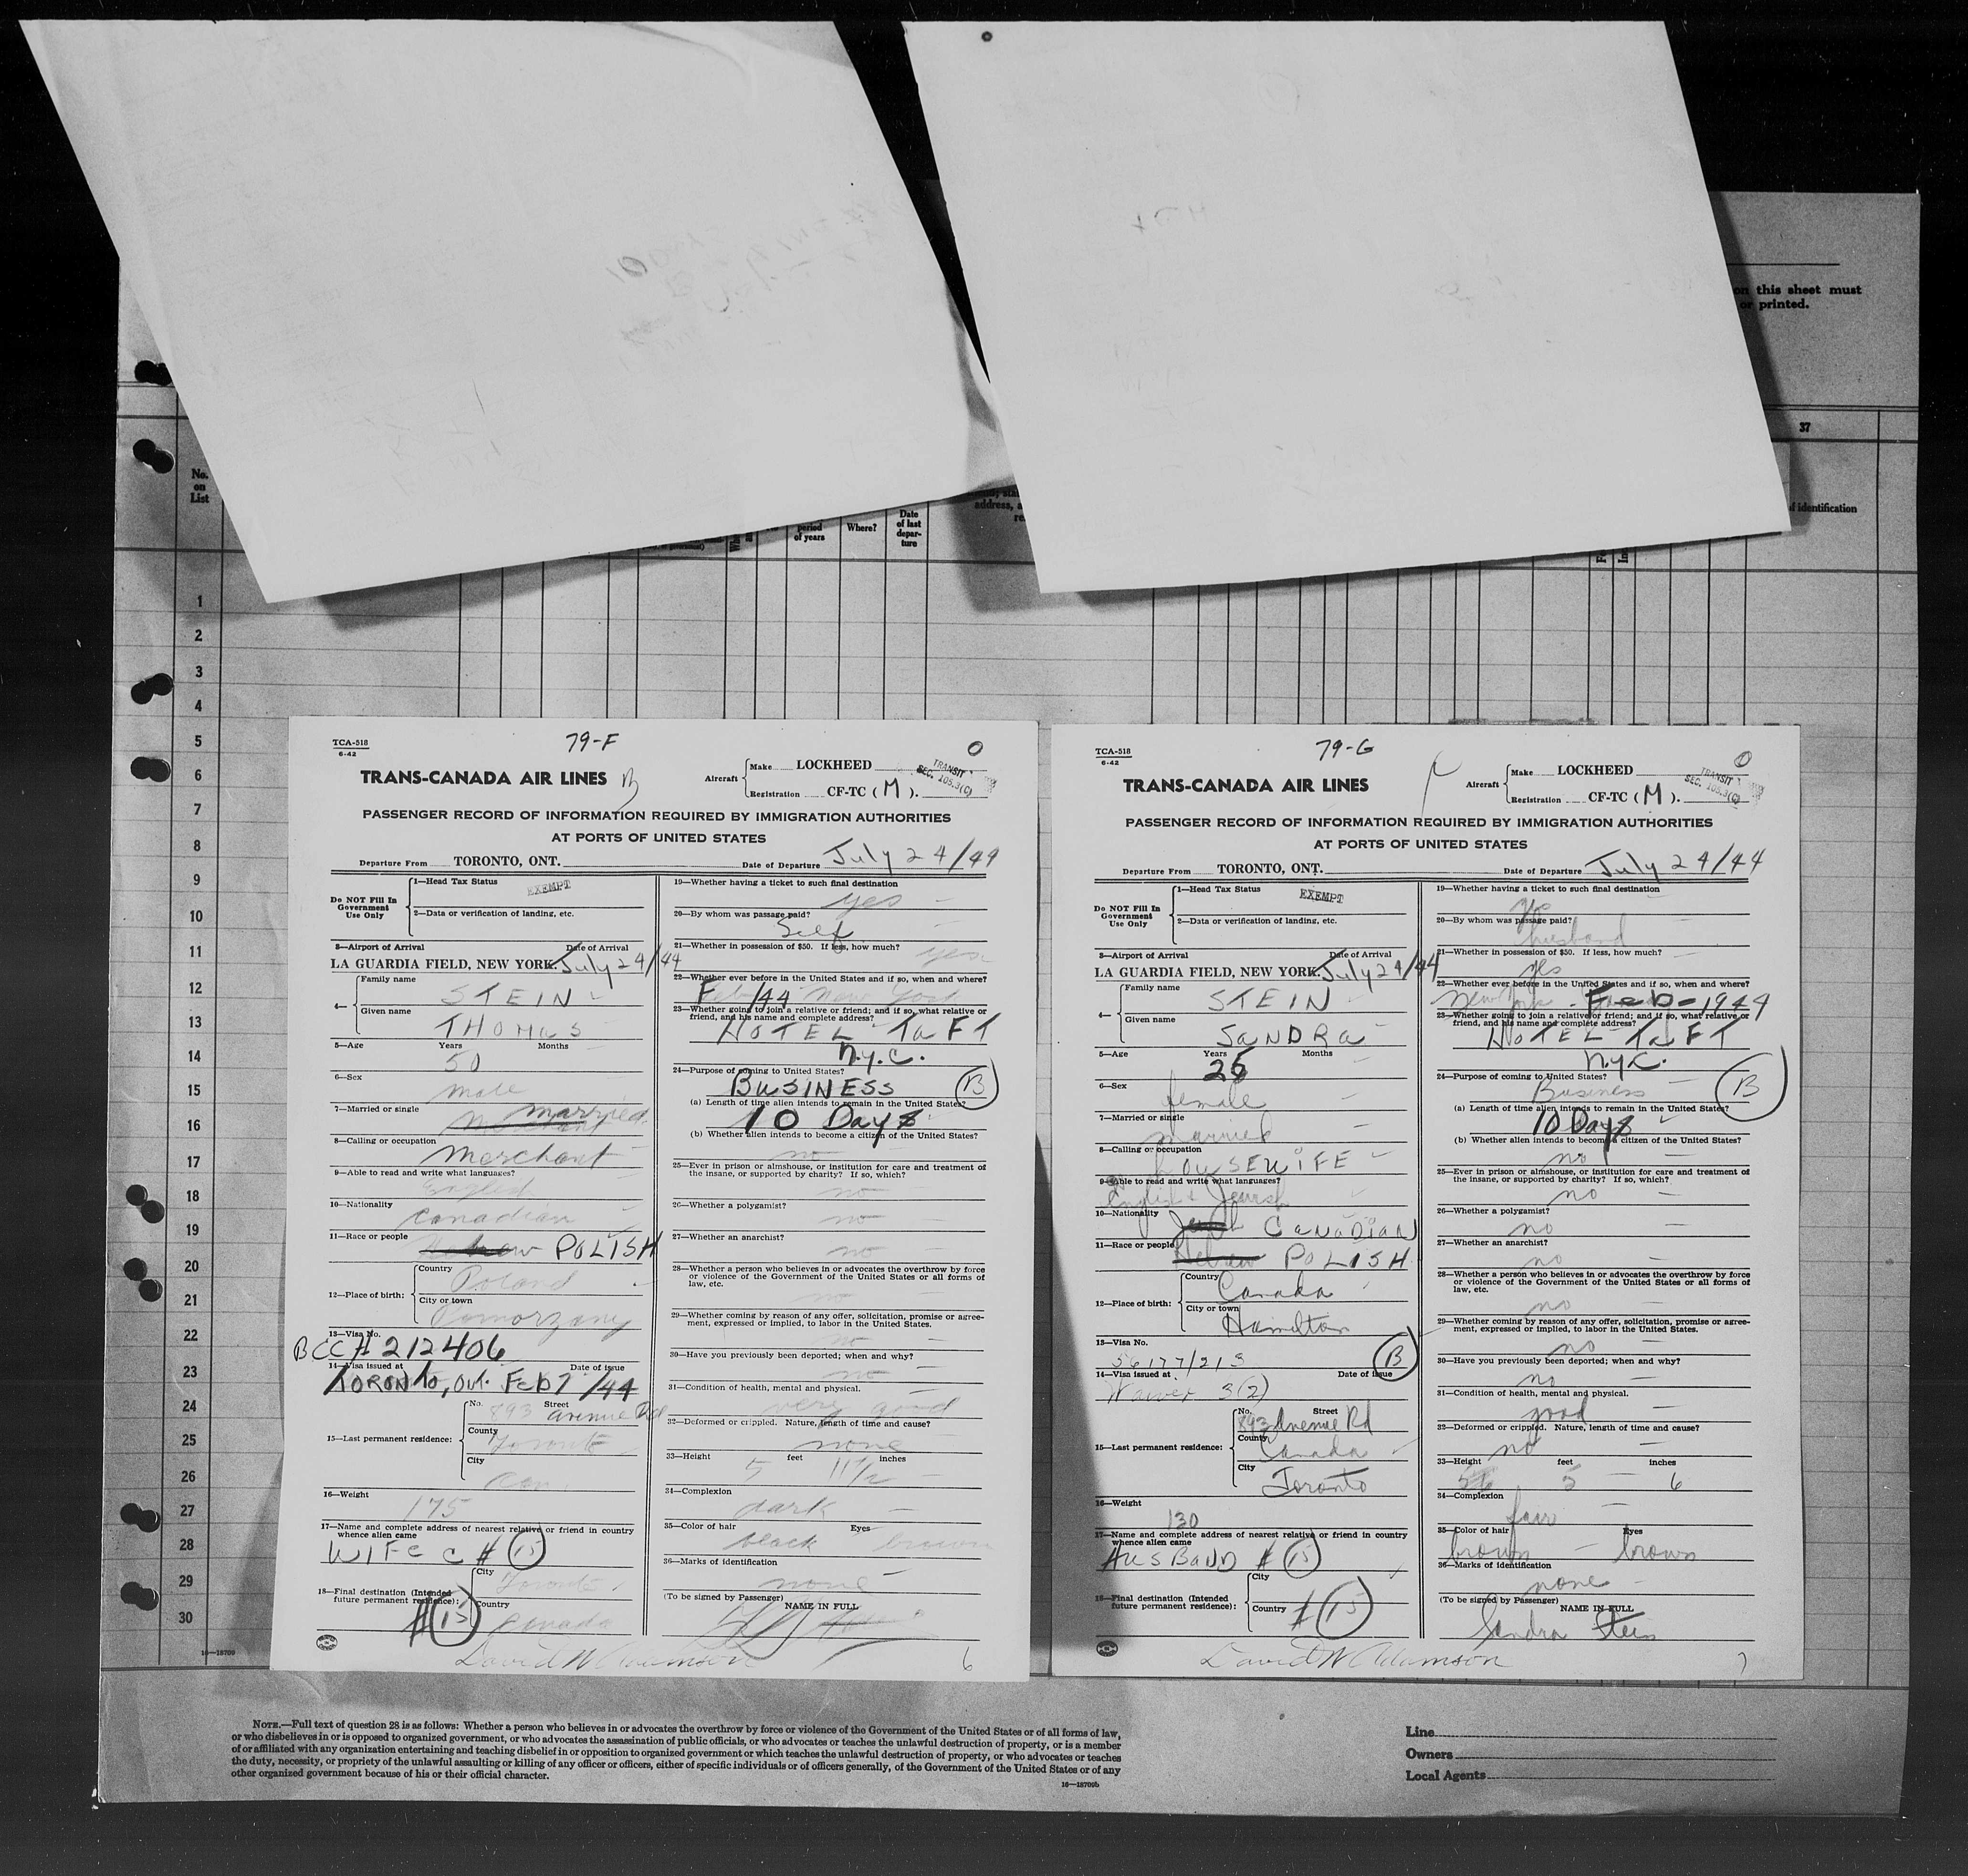 on this sheet must
or printed.
37
No.
on
List
period
of years
Where?
Date
of last
depar-
ture
address, a
re
of identification
1
2
3
4
5
6
7
8
9
10
11
12
13
14
15
16
17
18
19
20
21
22
23
24
25
26
27
28
29
30
16—18709
TCA-518
6-42
79-F
0
TRANS-CANADA AIR LINES B
Aircraft
Make LOCKHEED
Registration CF-TC ( M ).
TRANSIT
SEC. 105.3(C)
PASSENGER RECORD OF INFORMATION REQUIRED BY IMMIGRATION AUTHORITIES
AT PORTS OF UNITED STATES
Departure From TORONTO, ONT. Date of Departure July 24/44
Do NOT Fill In
Government
Use Only
1—Head Tax Status EXEMPT
2—Data or verification of landing, etc.
3—Airport of Arrival Date of Arrival
LA GUARDIA FIELD, NEW YORK. July 24/44
4—
Family name
STEIN
Given name
THOMAS
5—Age Years Months
50
6—Sex
male
7—Married or single
married
8—Calling or occupation
Merchant
9—Able to read and write what languages?
10—Nationality
Canadian
11—Race or people
Hebrew POLISH
12—Place of birth:
Country
Poland
City or town
Pomorzany
13—Visa No.
BCC# 212406
14—Visa issued at Date of issue
TORONTO, Ont. Feb 7/44
15—Last permanent residence:
No. Street
893 Avenue Rd
County
Toronto
City
Can.
16—Weight
175
17—Name and complete address of nearest relative or friend in country
whence alien came
WIFE C # 15
18—Final destination (Intended
future permanent residence):
City
Toronto
Country
Canada
# 15
19—Whether having a ticket to such final destination
yes
20—By whom was passage paid?
Self
21—Whether in possession of $50. If less, how much?
yes
22—Whether ever before in the United States and if so, when and where?
Feb/44 New York
23—Whether going to join a relative or friend; and if so, what relative or
friend, and his name and complete address?
HOTEL TAFT
N.Y.C.
24—Purpose of coming to United States?
BUSINESS B
(a) Length of time alien intends to remain in the United States?
10 Days
(b) Whether alien intends to become a citizen of the United States?
no
25—Ever in prison or almshouse, or institution for care and treatment of
the insane, or supported by charity? If so, which?
no
26—Whether a polygamist?
no
27—Whether an anarchist?
no
28—Whether a person who believes in or advocates the overthrow by force
or violence of the Government of the United States or all forms of
law, etc.
no
29—Whether coming by reason of any offer, solicitation, promise or agree-
ment, expressed or implied, to labor in the United States.
no
30—Have you previously been deported; when and why?
no
31—Condition of health, mental and physical.
very good
32—Deformed or crippled. Nature, length of time and cause?
none
33—Height feet inches
5 11 1/2
34—Complexion
dark
35—Color of hair Eyes
black brown
36—Marks of identification
none
(To be signed by Passenger)
NAME IN FULL
David W Adamson
6
TCA-518
6-42
79-G
0
TRANS-CANADA AIR LINES
Aircraft
Make LOCKHEED
Registration CF-TC ( M ).
TRANSIT
SEC. 105.3(C)
PASSENGER RECORD OF INFORMATION REQUIRED BY IMMIGRATION AUTHORITIES
AT PORTS OF UNITED STATES
Departure From TORONTO, ONT. Date of Departure July 24/44
Do NOT Fill In
Government
Use Only
1—Head Tax Status EXEMPT
2—Data or verification of landing, etc.
3—Airport of Arrival Date of Arrival
LA GUARDIA FIELD, NEW YORK. July 24/44
4—
Family name
STEIN
Given name
SANDRA
5—Age Years Months
6—Sex
female
7—Married or single
Married
8—Calling or occupation
HOUSEWIFE
9—Able to read and write what languages?
English & Jewish
10—Nationality
CANADIAN
11—Race or people
Hebrew POLISH
12—Place of birth:
Country
Canada
City or town
Hamilton
13—Visa No.
56177/213 B
14—Visa issued at Date of issue
Waiver 3(2)
15—Last permanent residence:
No. Street
893 Avenue Rd
County
Canada
City
Toronto
16—Weight
130
17—Name and complete address of nearest relative or friend in country
whence alien came
HUSBAND # 15
18—Final destination (Intended
future permanent residence):
City
Country # 15
19—Whether having a ticket to such final destination
yes
20—By whom was passage paid?
husband
21—Whether in possession of $50. If less, how much?
yes
22—Whether ever before in the United States and if so, when and where?
New York - Feb-1944
23—Whether going to join a relative or friend; and if so, what relative or
friend, and his name and complete address?
HOTEL TAFT
N.Y.C.
24—Purpose of coming to United States?
Business B
(a) Length of time alien intends to remain in the United States?
10 Days
(b) Whether alien intends to become a citizen of the United States?
no
25—Ever in prison or almshouse, or institution for care and treatment of
the insane, or supported by charity? If so, which?
no
26—Whether a polygamist?
no
27—Whether an anarchist?
no
28—Whether a person who believes in or advocates the overthrow by force
or violence of the Government of the United States or all forms of
law, etc.
no
29—Whether coming by reason of any offer, solicitation, promise or agree-
ment, expressed or implied, to labor in the United States.
no
30—Have you previously been deported; when and why?
no
31—Condition of health, mental and physical.
good
32—Deformed or crippled. Nature, length of time and cause?
no
33—Height feet inches
5 6
34—Complexion
fair
35—Color of hair Eyes
brown brown
36—Marks of identification
none
(To be signed by Passenger)
NAME IN FULL
Sandra Stein
David W Adamson
7
NOTE.—Full text of question 28 is as follows: Whether a person who believes in or advocates the overthrow by force or violence of the Government of the United States or of all forms of law,
or who disbelieves in or is opposed to organized government, or who advocates the assassination of public officials, or who advocates or teaches the unlawful destruction of property, or is a member
of or affiliated with any organization entertaining and teaching disbelief in or opposition to organized government or which teaches the unlawful destruction of property, or who advocates or teaches
the duty, necessity, or propriety of the unlawful assaulting or killing of any officer or officers, either of specific individuals or of officers generally, of the Government of the United States or of any
other organized government because of his or their official character.
16—18709b
Line
Owners
Local Agents